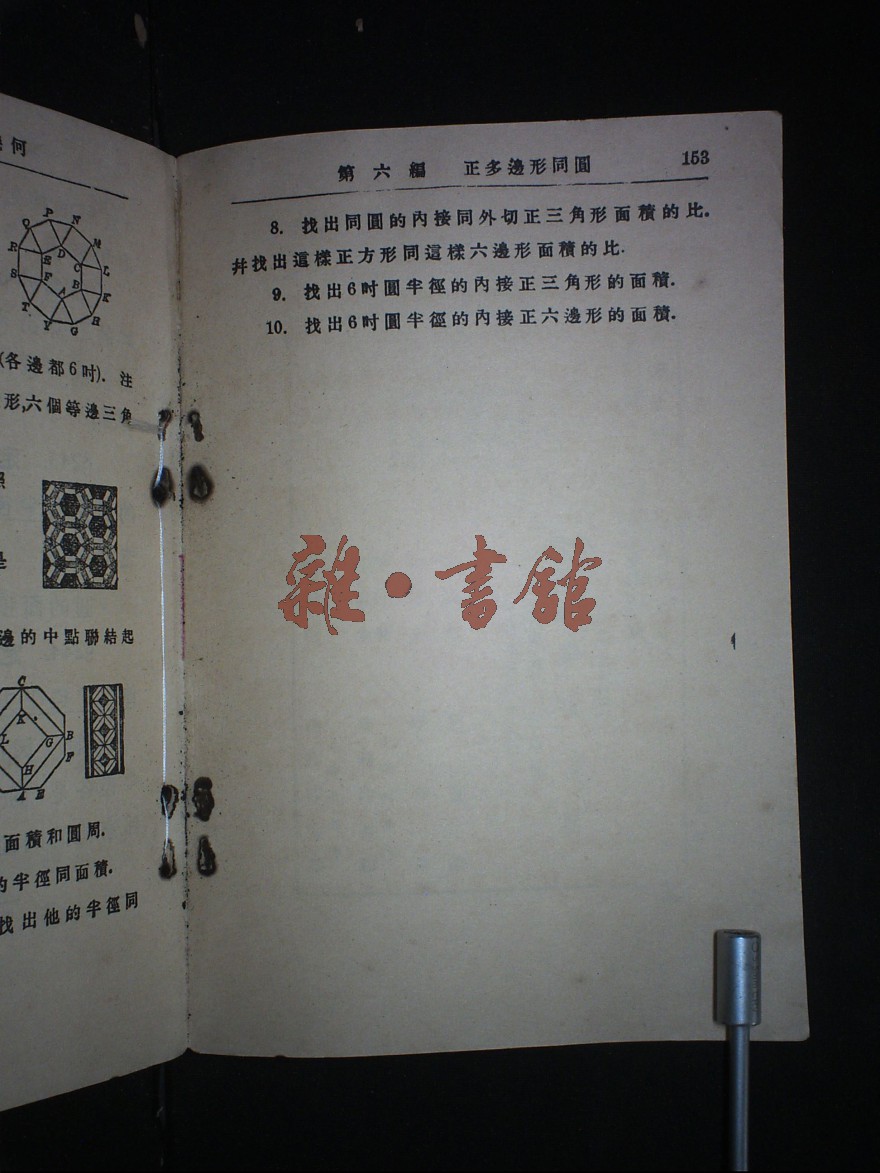 何
P
N
Q
M
R
D
E
C
L
S
F
B
A
K
T
H
Y
G
(各邊都6吋). 注
形,六個等邊三角
邊的中點聯結起
C
K
L
G
B
F
H
A
E
面積和圓周.
的半徑同面積.
找出他的半徑同
第六編 正多邊形同圓 153
8. 找出同圓的內接同外切正三角形面積的比。
幷找出這樣正方形同這樣六邊形面積的比.
9. 找出6吋圓半徑的內接正三角形的面積.
10. 找出6吋圓半徑的內接正六邊形的面積.
雜·書館